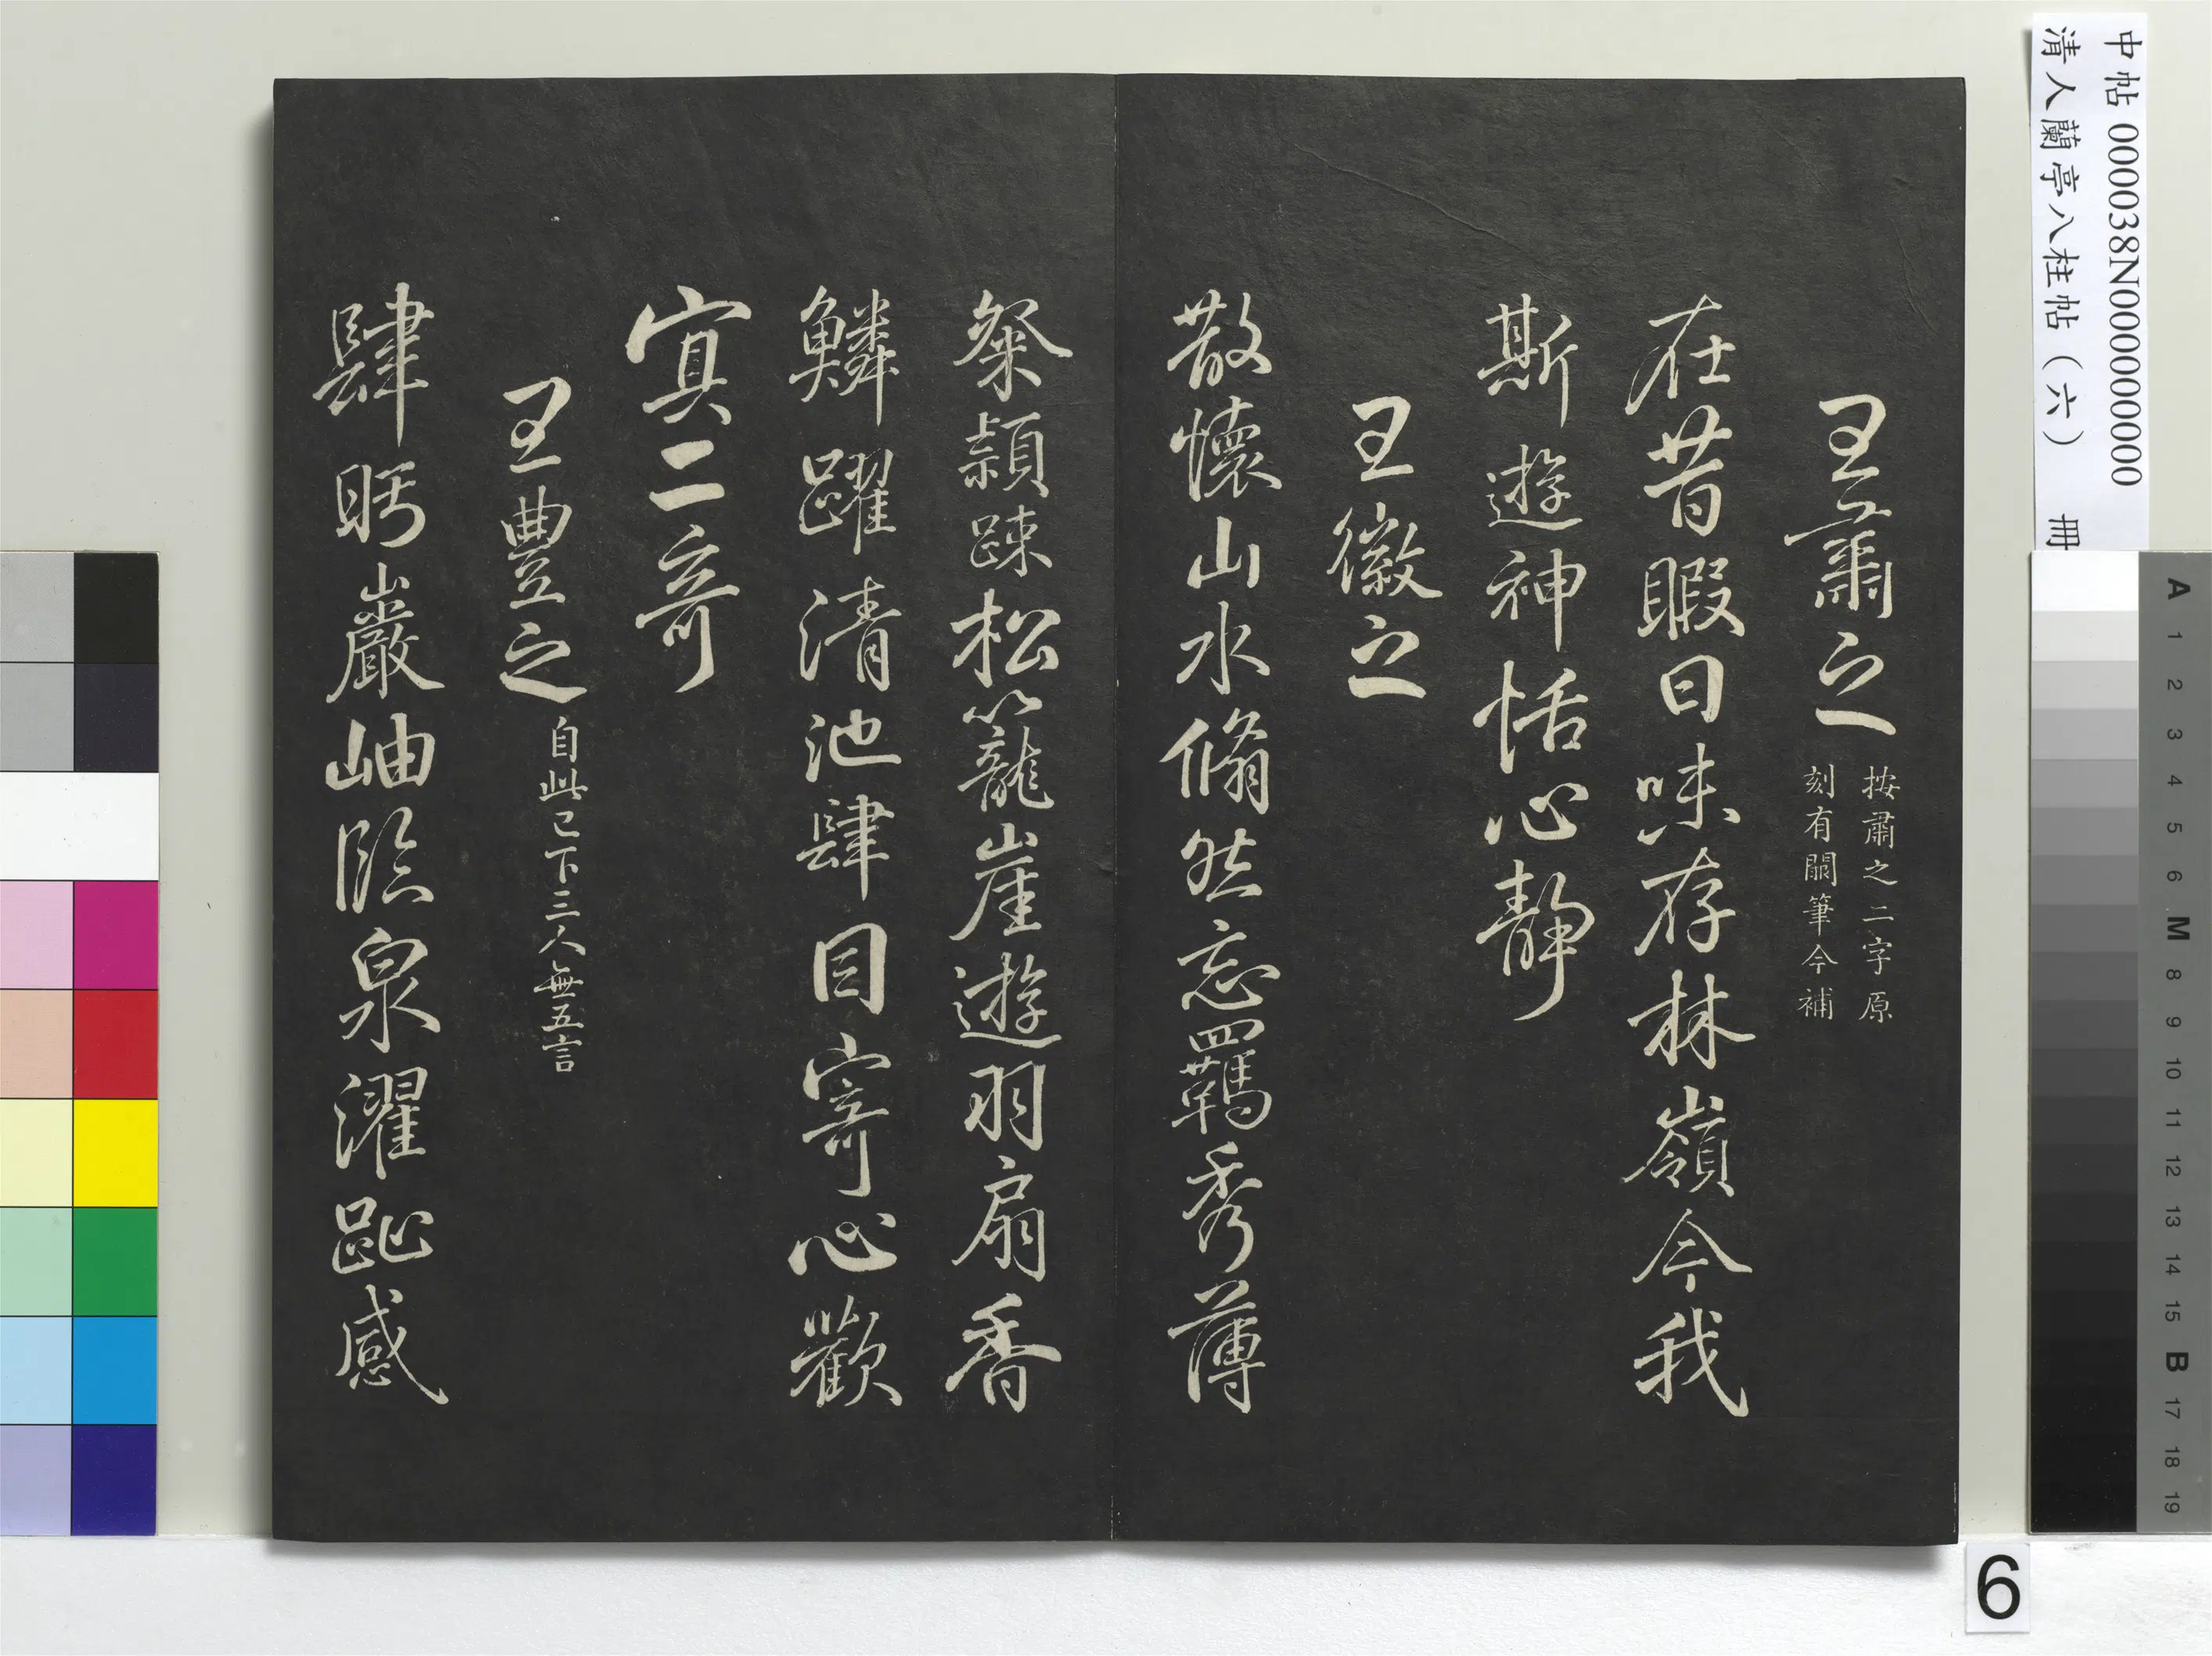 王肅之
按肅之二字原
刻有闕筆今補
在昔暇日味存林嶺今我
斯遊神恬心靜
王徽之
散懷山水翛然忘羈秀薄
粲穎踈松籠崖遊羽扇香
鱗躍清池肆目寄心歡
寘二奇
王豐之
自此已下三人無五言
肆眄巖岫臨泉濯趾感
中帖000038N000000000
清人蘭亭八柱帖（六） 冊
A
1
2
3
4
5
6
M
8
9
10
11
12
13
14
15
B
17
18
19
6